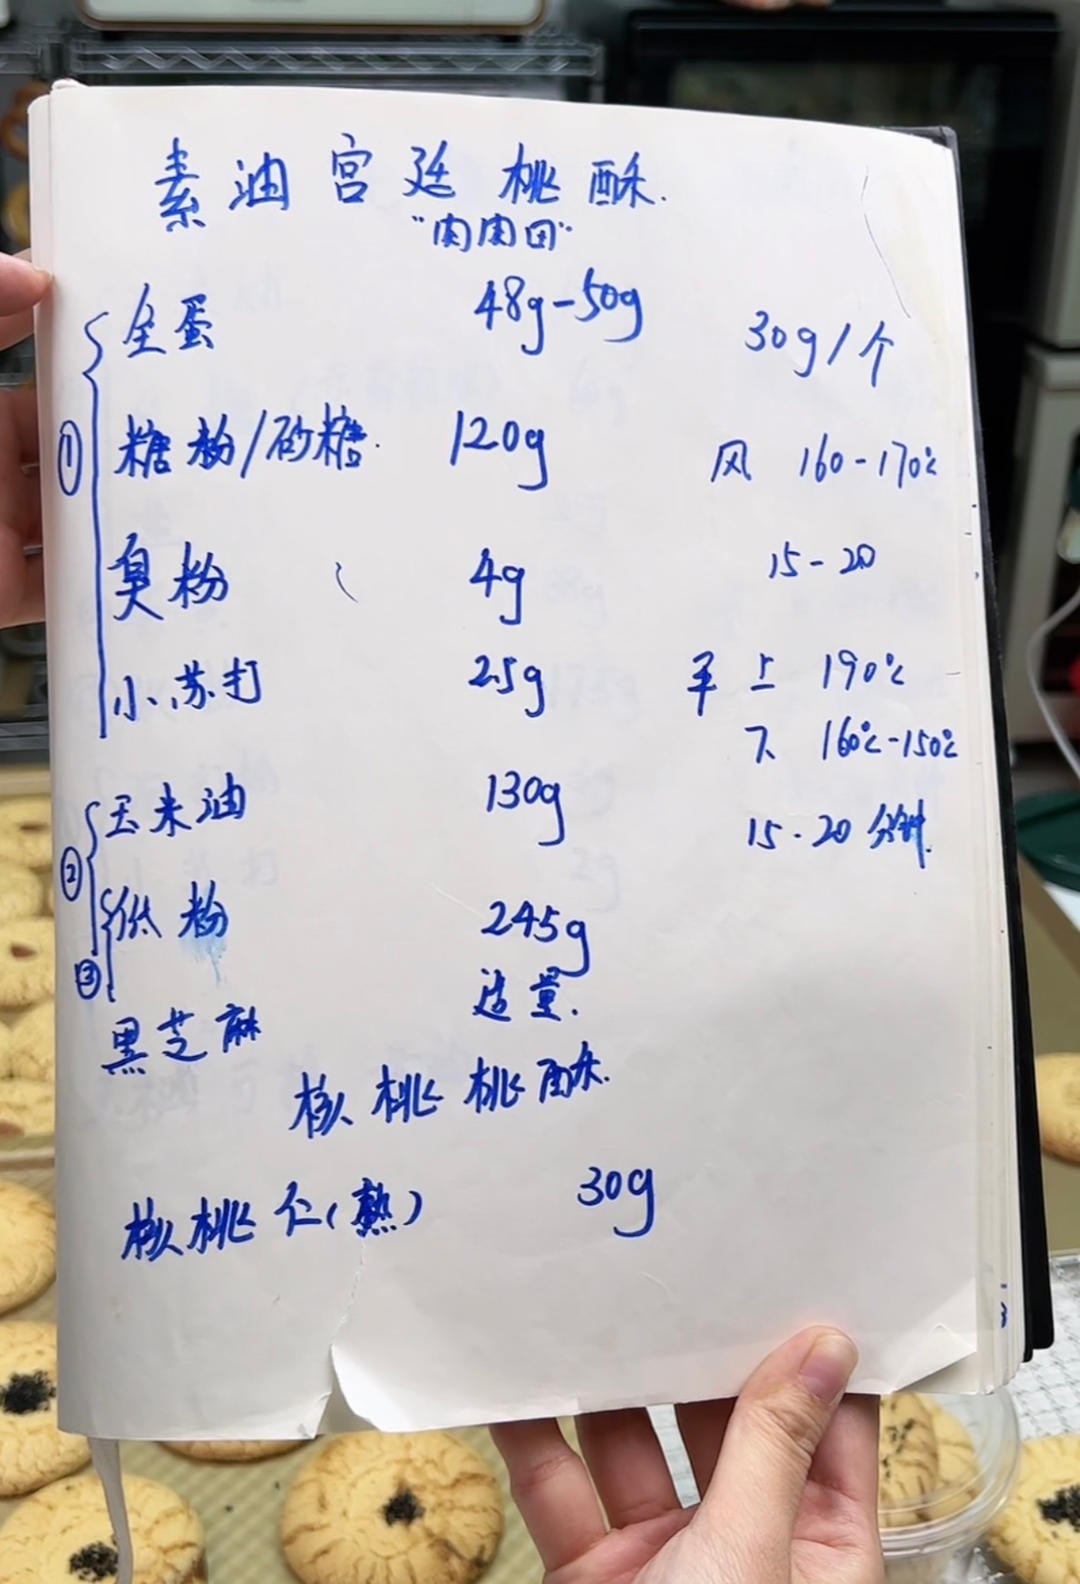 素油宫廷桃酥.
"肉肉田"
全蛋 48g-50g
① 糖粉/砂糖. 120g
臭粉 4g
小苏打 2.5g
② 玉米油 130g
③ 低粉 245g
黑芝麻 适量.
核桃桃酥.
核桃仁(熟) 30g
30g/个
风 160-170℃
15-20
平 上 190℃
下 160℃-150℃
15-20分钟.